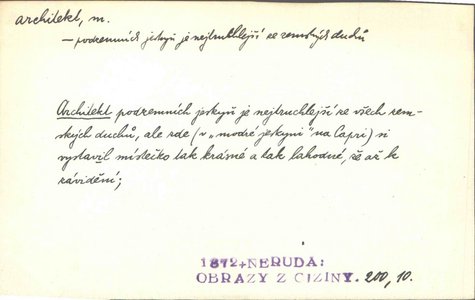 architekt, m.
— podzemních jeskyň je nejtruchlejší ze zemských duchů
Architekt podzemních jeskyň je nejtruchlejší ze všech zem-
ských duchů, ale zde (v „modré jeskyni" na Capri) si
vystavil městečko tak krásné a tak lahodné, že až k
závidění;
1872+NERUDA:
OBRAZY Z CIZINY. 200, 10.